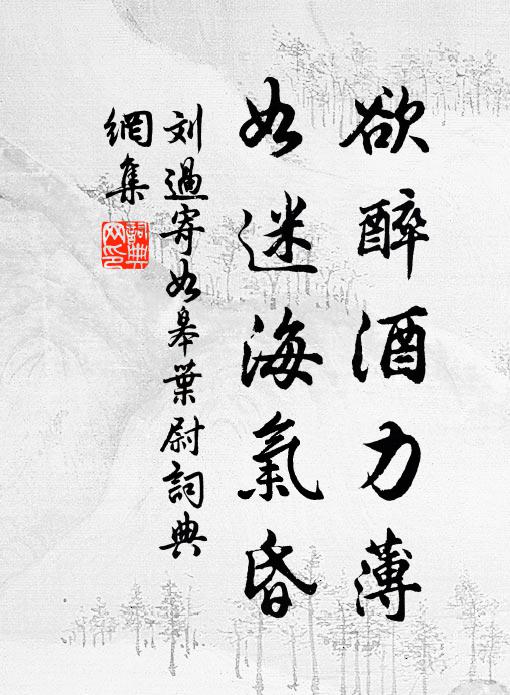 欲醉酒力薄
如迷海氣昏
刘過寄如皋葉尉詞典
網集
詞典
网印